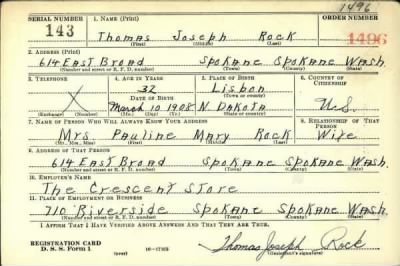 1496
SERIAL NUMBER 1. NAME (Print) ORDER NUMBER
143 Thomas Joseph Rock 1496
(First) (Middle) (Last)
2. ADDRESS (Print)
614 East Broad Spokane Spokane Wash.
(Number and street or R. F. D. number) (Town) (County) (State)
3. TELEPHONE 4. AGE IN YEARS 5. PLACE OF BIRTH 6. COUNTRY OF CITIZENSHIP
X 32 Lisbon
DATE OF BIRTH (Town or county)
March 10 1908 N. Dakota U.S.
(Exchange) (Number) (Mo.) (Day) (Yr.) (State or country)
7. NAME OF PERSON WHO WILL ALWAYS KNOW YOUR ADDRESS 8. RELATIONSHIP OF THAT PERSON
Mrs. Pauline Mary Rock Wife
(Mr., Mrs., Miss) (First) (Middle) (Last)
9. ADDRESS OF THAT PERSON
614 East Broad Spokane Spokane Wash.
(Number and street or R. F. D. number) (Town) (County) (State)
10. EMPLOYER'S NAME
The Crescent Store
11. PLACE OF EMPLOYMENT OR BUSINESS
710 Riverside Spokane Spokane Wash.
(Number and street or R. F. D. number) (Town) (County) (State)
I AFFIRM THAT I HAVE VERIFIED ABOVE ANSWERS AND THAT THEY ARE TRUE.
REGISTRATION CARD
D. S. S. Form 1 (over) Thomas Joseph Rock
(Registrant's signature)